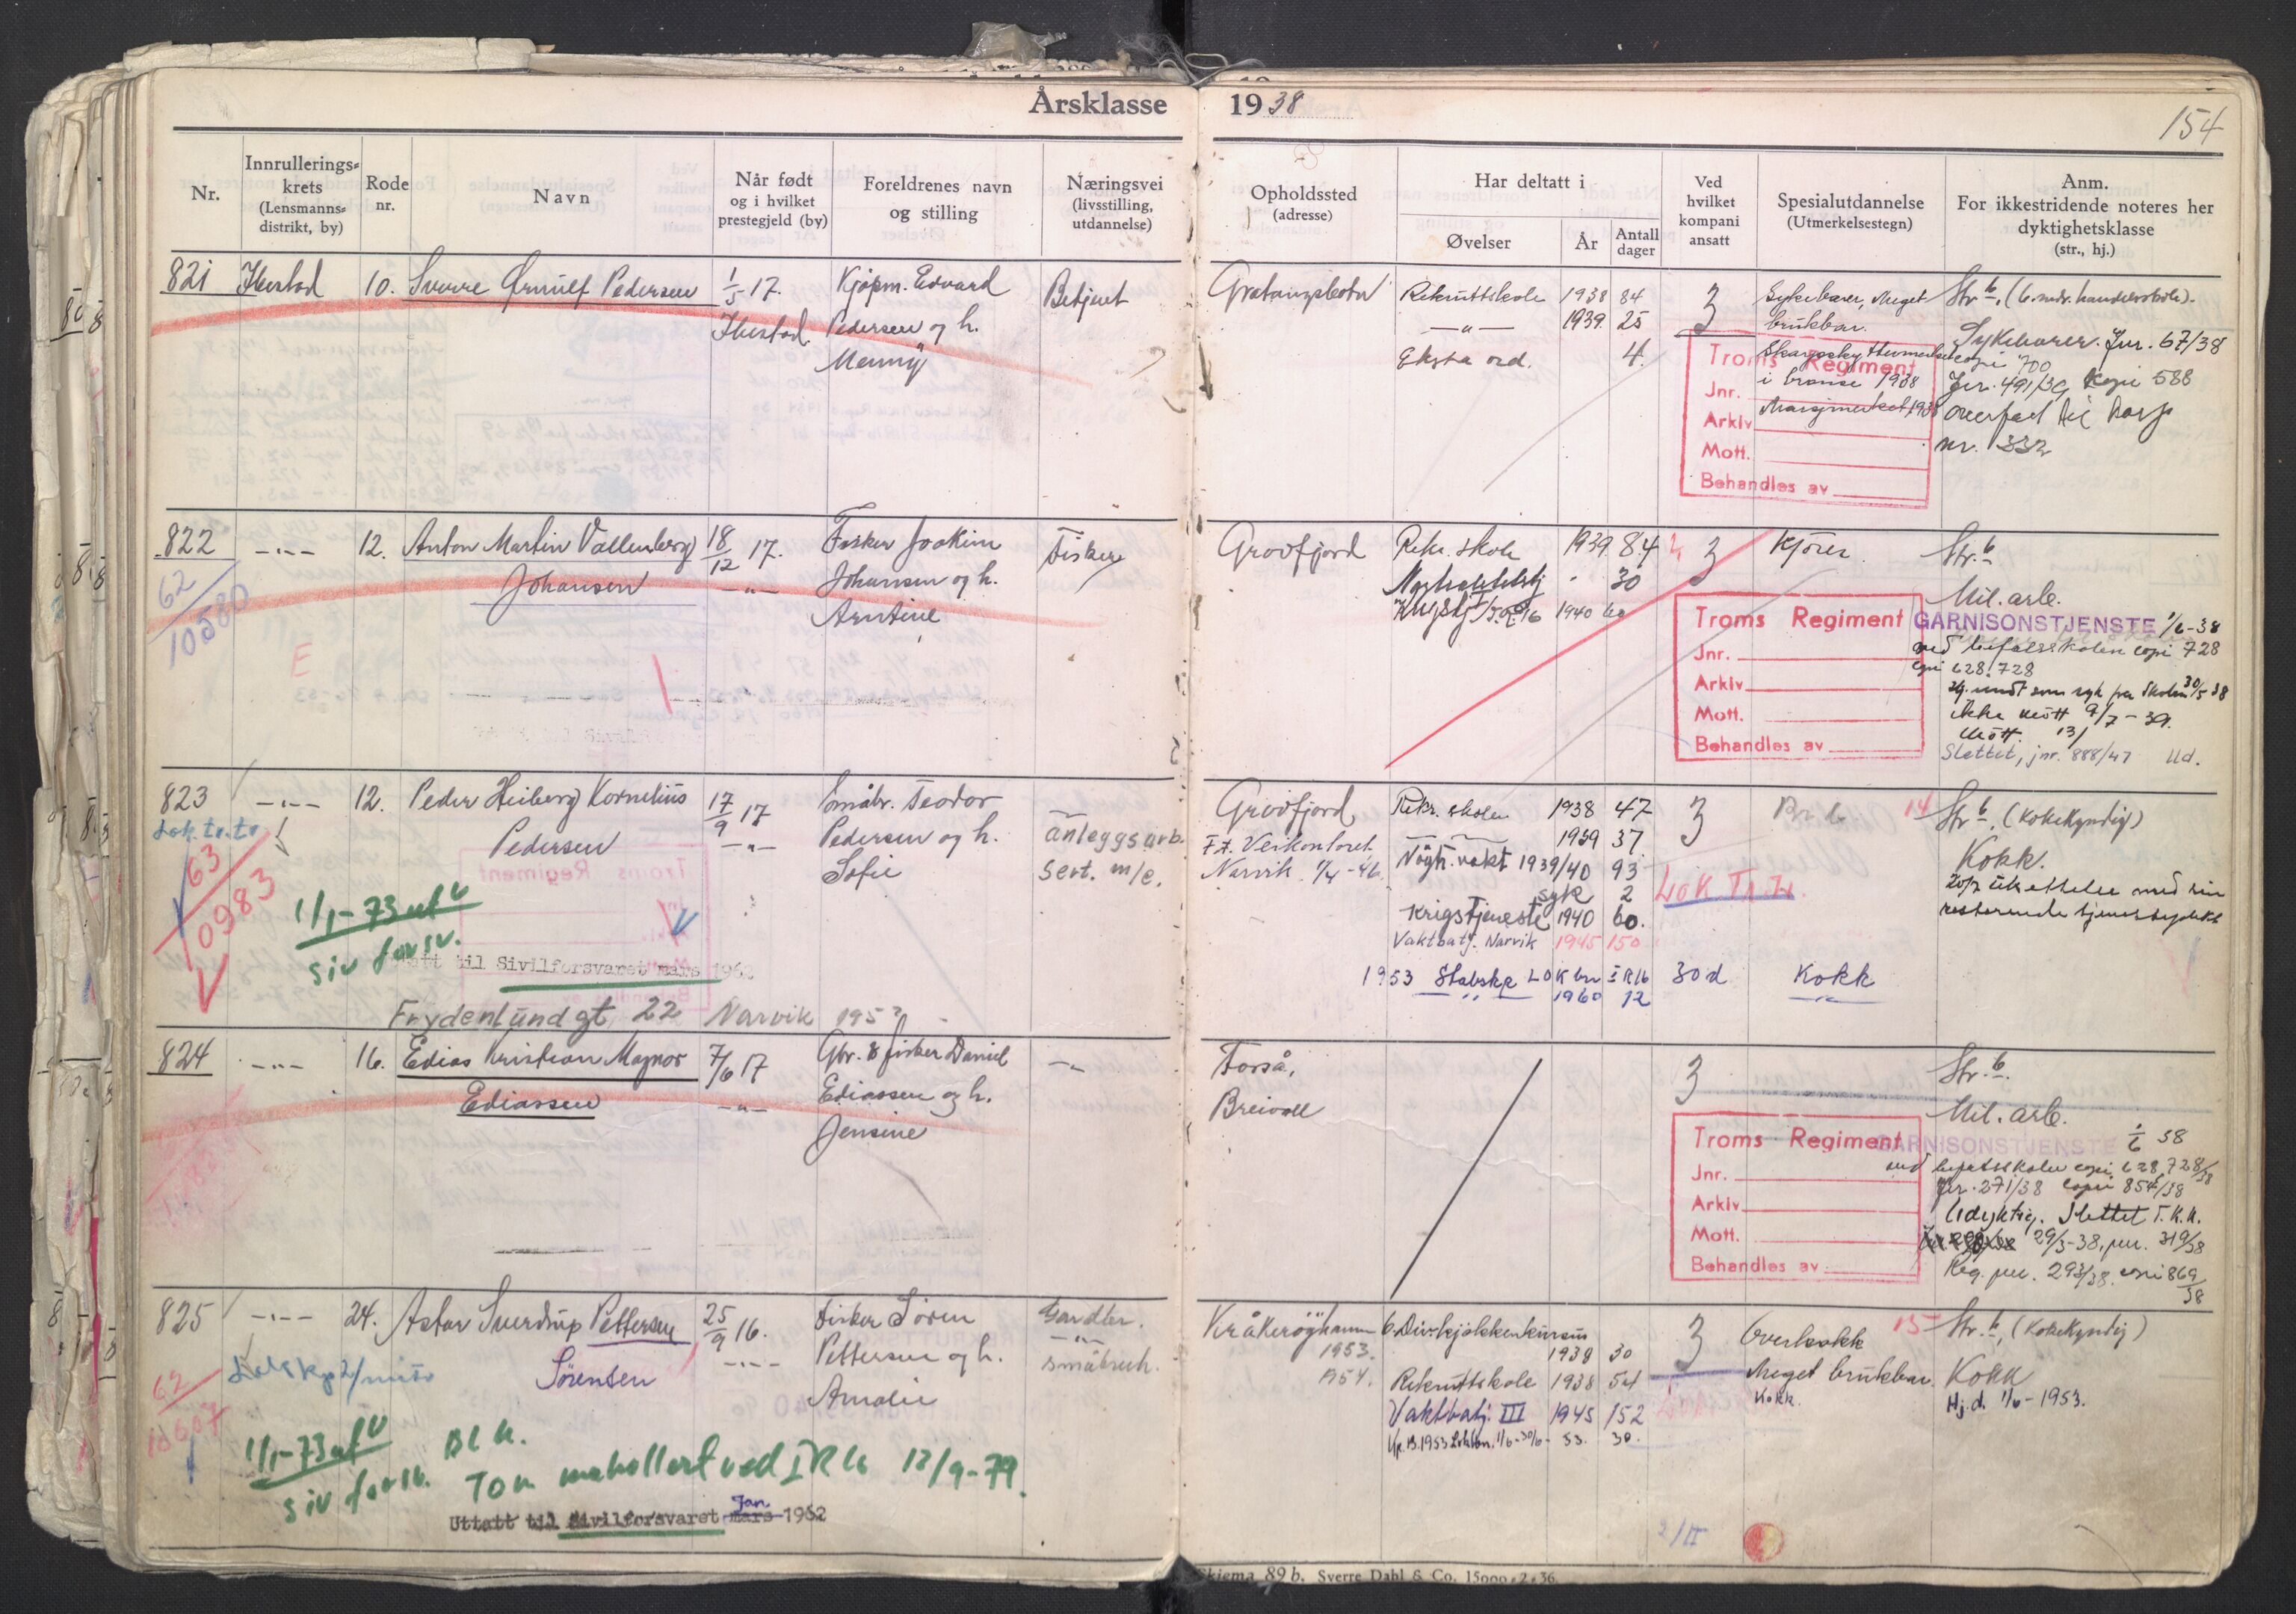 Årsklasse 1938
154
Nr.
Innrullerings-
krets
(Lensmanns-
distrikt, by)
Rode
nr.
Navn
Når født
og i hvilket
prestegjeld (by)
Foreldrenes navn
og stilling
Næringsvei
(livsstilling,
utdannelse)
Opholdssted
(adresse)
Har deltatt i
Øvelser
År
Antall
dager
Ved
hvilket
kompani
ansatt
Spesialutdannelse
(Utmerkelsestegn)
Anm.
For ikkestridende noteres her
dyktighetsklasse
(str., hj.)
821 Ibestad 10. Sverre Ørnulf Pedersen 1/5 17.
Ibestad
Kjøpm. Edvard
Pedersen og h.
Menny
Betjent
Gratangsbotn
Rekruttskole 1938 84
—"— 1939 25
Ekstra ord. 4.
3
Sykebærer, Meget
brukbar.
i bronse 1938
Marsjmerket 1938
Str. b. (6. mdr. handelsskole).
Sykebærer. Jnr. 67/38
copi 700
Jnr. 491/39 Kopi 588
overført til Harst
nr. 332
Troms Regiment
Jnr.
Arkiv
Mott.
Behandles av
822 —"— 12. Anton Martin Vallenberg
Johansen
18/12 17.
—"—
Fisker Joakim
Johansen og h.
Arntine
Fisker
62
10580
E
Grovfjord
Rekr. skole 1939 84
30
1940 60
3
Kjører
Str. b
Mil. arb.
GARNISONSTJENSTE 1/6-38
ved befalsskolen copi 728
copi 628. 728
ikke møtt 9/7-39.
Møtt. 13/
Slettet, jnr. 888/47 Ud.
Troms Regiment
Jnr.
Arkiv
Mott.
Behandles av
823 —"— 12. Peder Heiberg Kornelius
Pedersen
17/9 17
—"—
Småbr. Teodor
Pedersen og h.
Sofie
anleggsarb.
sert. m/c.
Lok. tr. tr
63
10983
1/1-73 utg
siv forsv.
til Sivilforsvaret mars 1962
Frydenlundgt 22 Narvik 195
Grovfjord
F.t. Veikontoret
Narvik 1/4-46.
Rekr. skolen 1938 47
1939 37
Nøytr. vakt 1939/40 93
syk 2
Krigstjeneste 1940 60.
Vaktbatj. Narvik 1945 150
1953 Stabskp LOK bn IR16 30d Kokk
—"— 1960 12
3
LOK Tr. Tr.
14
Str. b. (kokekyndig)
Kokk.
824 —"— 16. Edias Kristian Magnor
Ediassen
7/6 17
—"—
Gbr. & fisker Daniel
Ediassen og h.
Jensine
—"—
Forså,
Breivoll
3
Str. b.
Mil. arb.
GARNISONSTJENSTE 1/6 38
ved befalsskolen copi 628, 728/38
Jnr. 271/38 copi 854/38
Udyktig. Slettet T.K.K.
29/3-38, jnr. 319/38
Reg. jnr. 293/38. copi 869/38
Troms Regiment
Jnr.
Arkiv
Mott.
Behandles av
825 —"— 24. Astor Sverdrup Pettersen
Sørensen
25/9 16.
—"—
Fisker Søren
Pettersen og h.
Amalie
Gardbr.
—"—
småbruk.
62
10607
1/1-73 utg
siv forsv.
IR 16 12/9-79.
Uttatt til Sivilforsvaret mars Jan. 1962
Kråkerøyhamn
1953.
A54.
6. Div. kjøkkenkursus
1938 30
Rekruttskole 1938 54
Vaktbatj. III 1945 152
53. 30.
3
Overkokk
Meget brukbar.
Kokk.
15
Str. b. (kokekyndig)
Kokk
Hj.d. 1/6-1953.
2/II
Skjema 89 b. Sverre Dahl & Co. 15000.2.36.